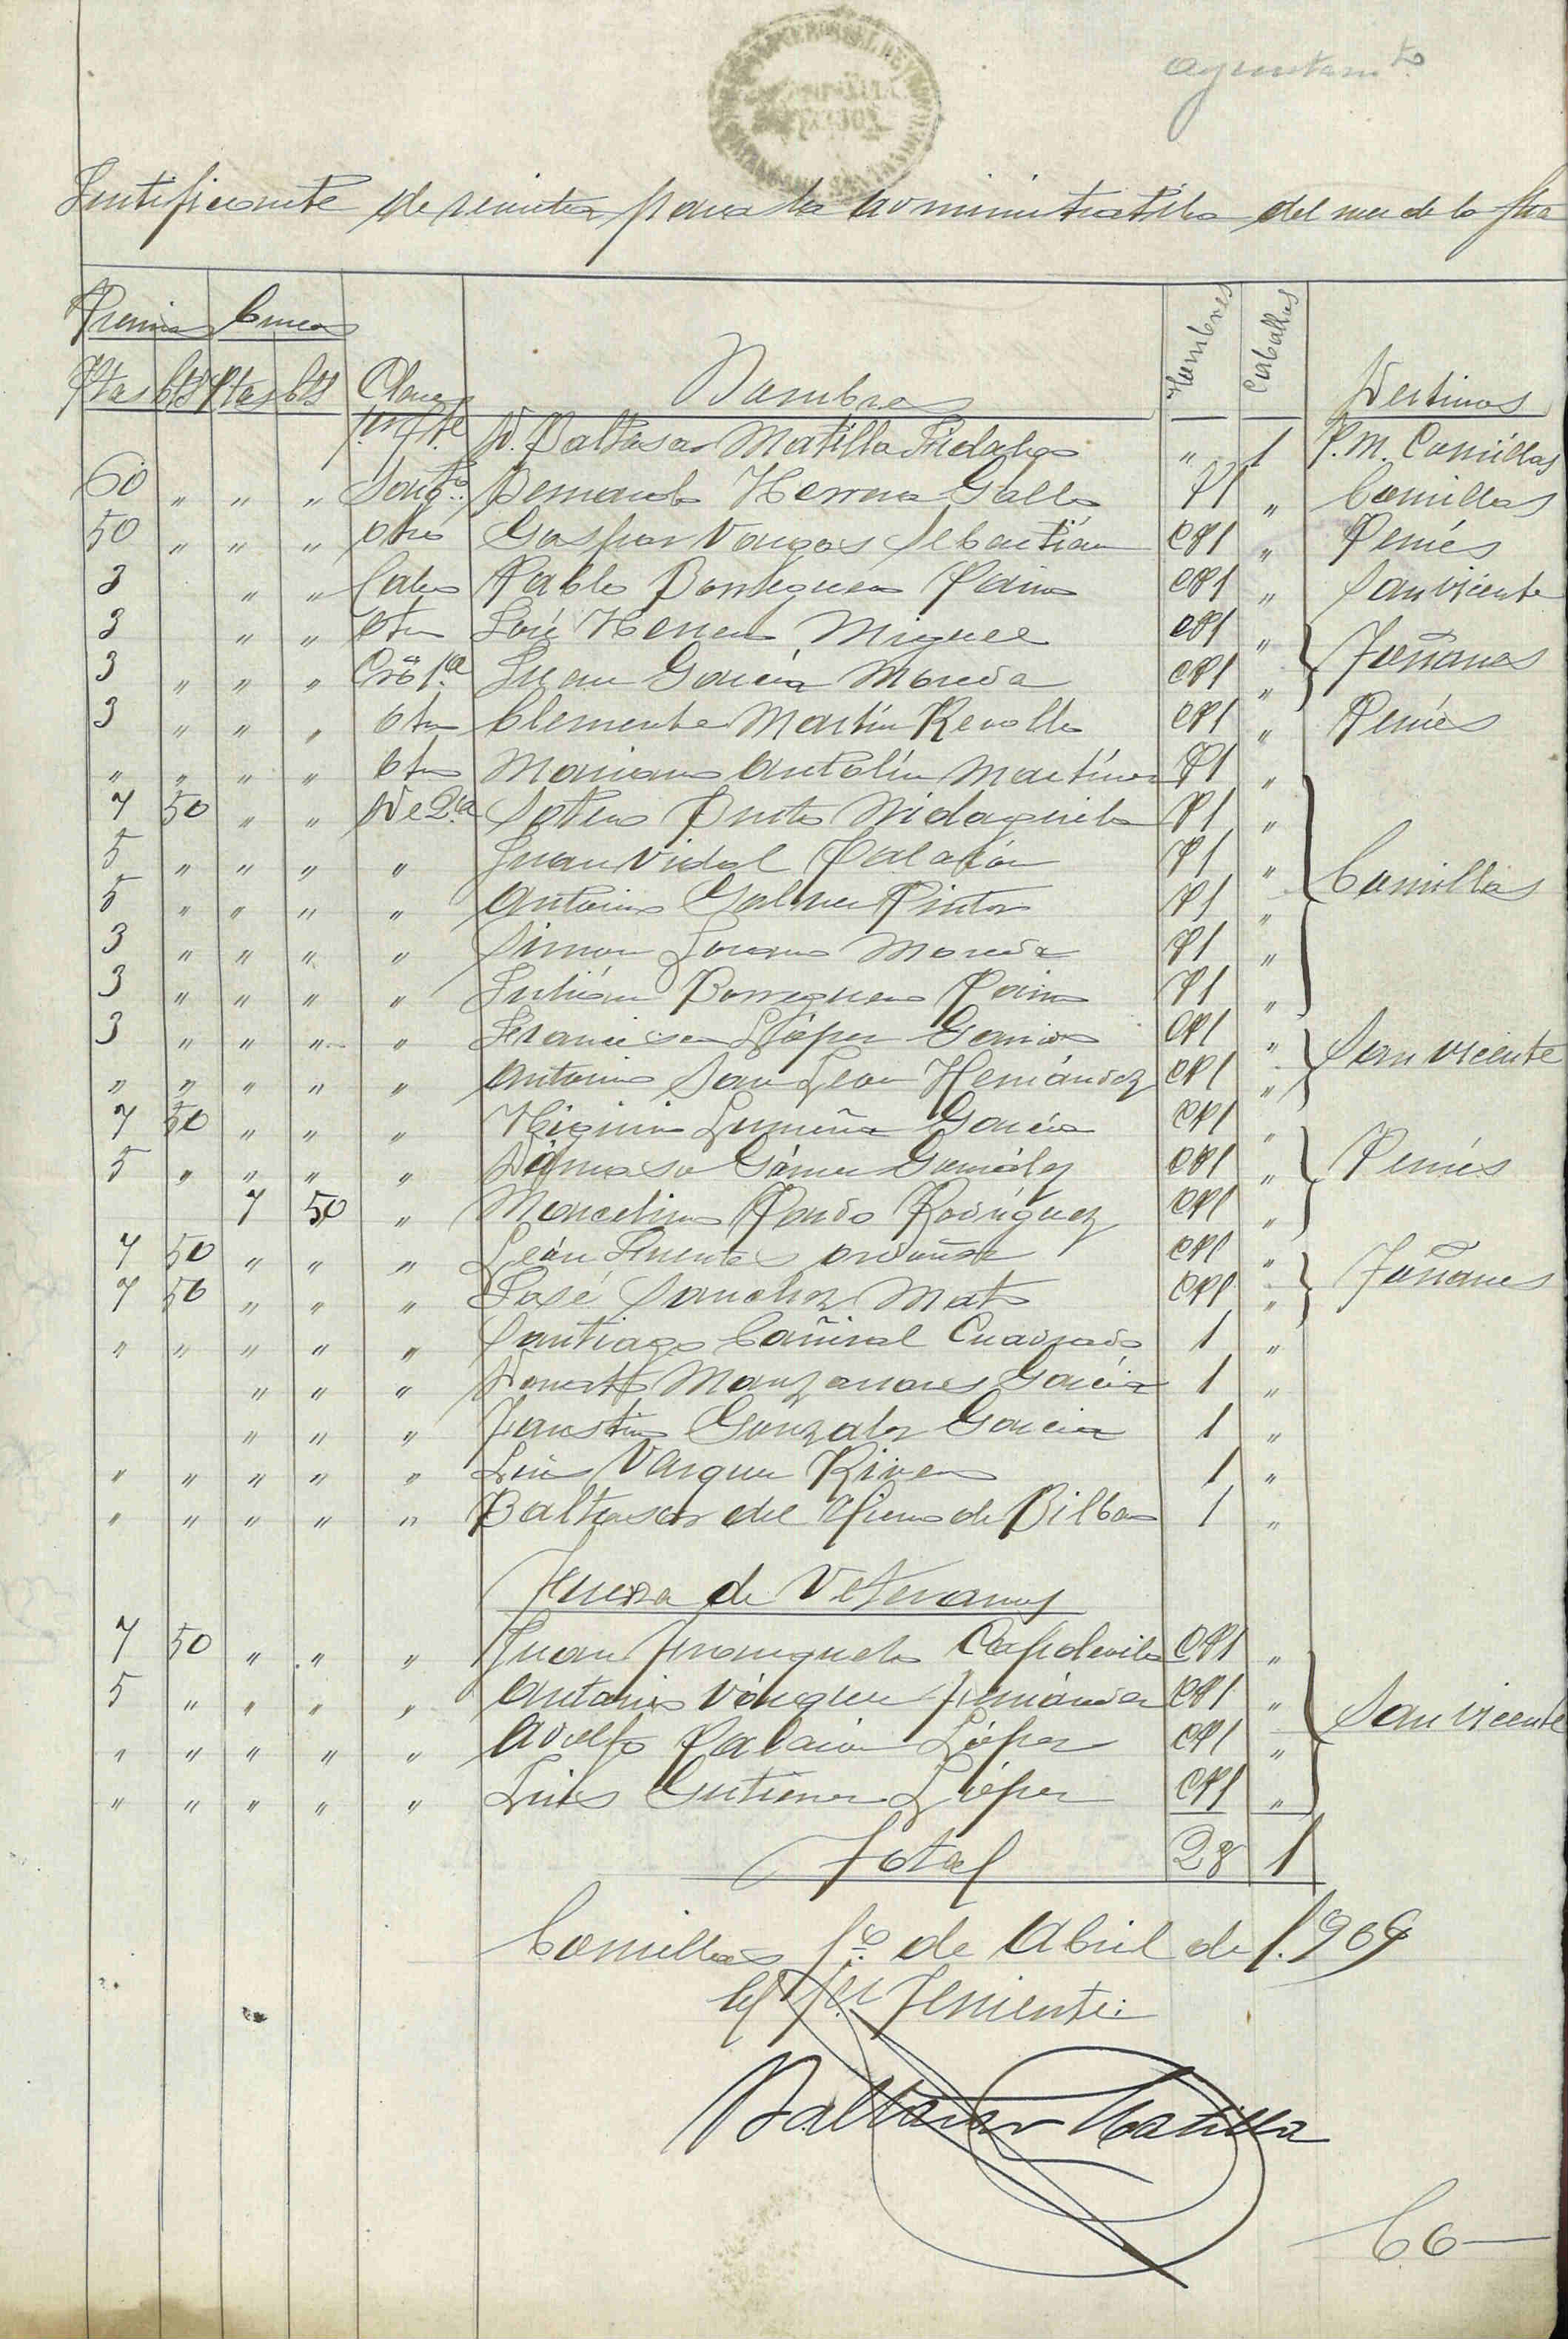 Ayuntamto
Justificante de revista para la administrativa del mes de la fha
Premios Cruces
Ptas Cts Ptas Cts Clases Nombres Hombres Caballos Destinos
1er Tte D. Baltasar Matilla Hidalgo " 1 P.M. Comillas
60 " " " Sargto Bernardo Herrera Gallo P1 " Comillas
50 " " " Otro Gaspar Vargas Sebastián CP1 " Penés
3 " " Cabo Pablo Borreguero Paino CP1 " San Vicente
3 " " Otro José Herrero Miguel CP1 "
3 " " " Gda 1.a Juan García Moreda CP1 " Toñanes
3 " " " Otro Clemente Martín Revollo CP1 " Penés
" " " " Otro Mariano Antolín Martínez P1 "
7 50 " " De 2.a Sotero Brito P1 "
5 " " " " Juan Vidal Palación P1 " Comillas
5 " " " " Antonio Galvez Pintor P1 "
3 " " " " Simon Lorenzo Moreda P1 "
3 " " " " Julián Borreguero Paino P1 "
3 " " " " Francisco López CP1 " San Vicente
" " " " " Antonio San Leon Hernández CP1 "
7 50 " " " Higinio García CP1 "
5 " " " " Dámaso Gómez González CP1 " Penés
7 50 " Marcelino Pardo Rodríguez CP1 "
7 50 " " " León Fuentes Orduña CP1 "
7 50 " " " José Sanchez Mato CP1 " Toñanes
" " " " " Santiago Cañival Cuadrado 1 "
" " " Donato Manzanares García 1 "
" " " Faustino Gonzalez Garcia 1 "
" " " " " Luis Vazquez Rivero 1 "
" " " " " Baltasar del de Bilbao 1 "
Fuerza de Veteranos
7 50 " " " Juan Capdevila CP1 "
5 " " " " Antonio Vázquez Fernández CP1 " San Vicente
" " " " " Adolfo Palacio López CP1 "
" " " " " Luis Gutierrez López CP1 "
Total 28 1
Comillas 1.o de Abril de 1.909
El 1er Teniente:
Baltasar Matilla